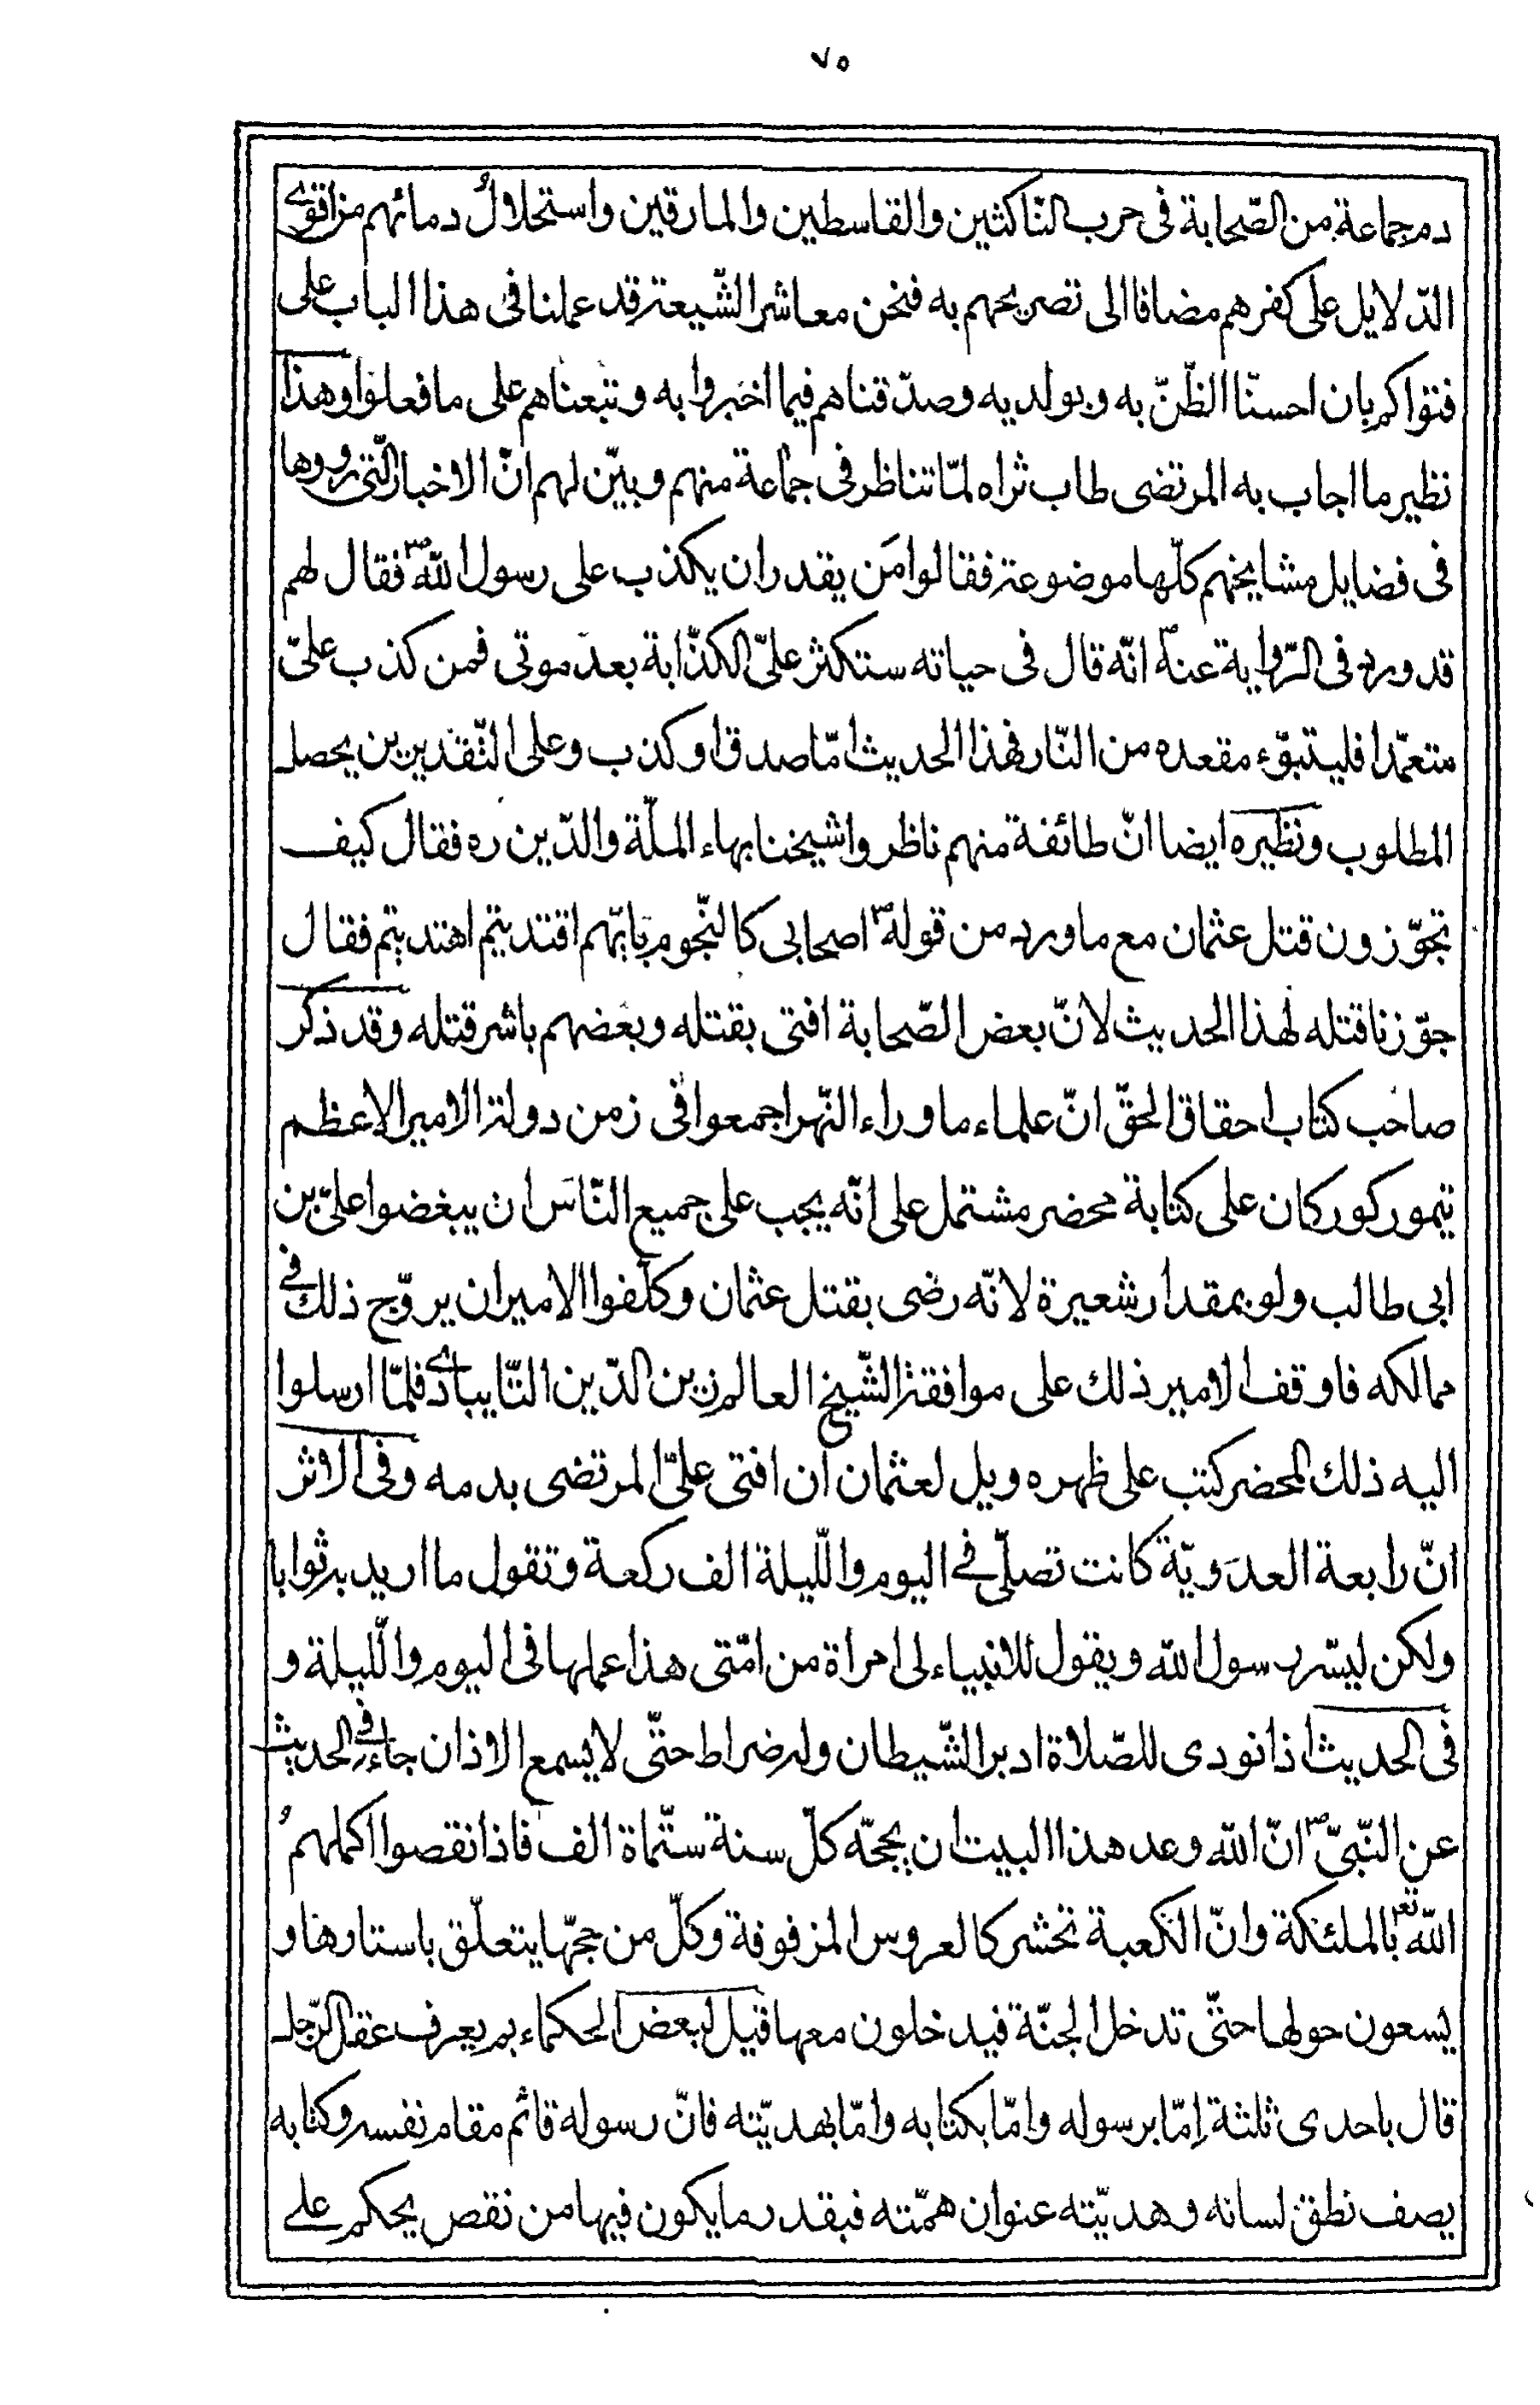 ٧٥
دم جماعة من الصّحابة فى حرب النّاكثين والقاسطين والمارقين واستحلالُ دمائهم من اقوى
الدّلايل على كفرهم مضافا الى تصريحهم به فنحن معاشر الشّيعة قد عملنا فى هذا الباب على
فتواكم بان احسنّا الظّنّ به وبولديه وصدّقناهم فيما اخبروا به وتبعناهم على ما فعلوا وهذا
نظير ما اجاب به المرتضى طاب ثراه لمّا تناظر فى جماعة منهم وبيّن لهم انّ الاخبار الّتى رووها
فى فضايل مشايخهم كلّها موضوعة فقالوا مَن يقدر ان يكذب على رسول اللّه ص فقال لهم
قد ورد فى الرّواية عنه ص انّه قال فى حياته ستكثر علىّ الكذّابة بعد موتى فمن كذب علىّ
متعمّدا فليتبوّء مقعده من النّار فهذا الحديث امّا صدق او كذب وعلى التّقديرين يحصل
المطلوب ونظيره ايضا انّ طائفة منهم ناظروا شيخنا بهاء الملّة والدّين ره فقال كيف
تجوّزون قتل عثمان مع ما ورد من قوله ص اصحابى كالنّجوم بايّهم اقتديتم اهتديتم فقال
جوّزنا قتله لهذا الحديث لانّ بعض الصّحابة افتى بقتله وبعضهم باشر قتله وقد ذكر
صاحب كتاب احقاق الحقّ انّ علماء ما وراء النّهر اجمعوا فى زمن دولة الامير الاعظم
تيمور كوركان على كتابة محضر مشتمل على انّه يجب على جميع النّاس ان يبغضوا علىّ بن
ابى طالب ولو بمقدار شعيرة لانّه رضى بقتل عثمان وكلّفوا الامير ان يروّج ذلك فى
ممالكه فاوقف الامير ذلك على موافقة الشّيخ العالم زين الدّين التّايبادى فلمّا ارسلوا
اليه ذلك المحضر كتب على ظهره ويل لعثمان ان افتى علىّ المرتضى بدمه وفى الاثر
انّ رابعة العدَويّة كانت تصلّى فى اليوم واللّيلة الف ركعة وتقول ما اريد به ثوابا
ولكن ليسّر رسول اللّه ويقول للانبياء لى امراة من امّتى هذا عملها فى اليوم واللّيلة و
فى الحديث اذا نودى للصّلاة ادبر الشّيطان وله ضراط حتّى لا يسمع الاذان جاء فى الحديث
عن النّبىّ ص انّ اللّه وعد هذا البيت ان يحجّه كلّ سنة ستّماة الف فاذا نقصوا اكملهم
اللّه تع بالملئكة وانّ الكعبة تحشر كالعروس المزفوفة وكلّ من حجّها يتعلّق باستارها و
يسعون حولها حتّى تدخل الجنّة فيدخلون معها قيل لبعض الحكماء بم يعرف عقل الرّجل
قال باحدى ثلثة اِمّا برسوله وامّا بكتابه وامّا بهديّته فانّ رسوله قائم مقام نفسه وكتابه
يصف نطق لسانه وهديّته عنوان همّته فبقدر ما يكون فيها من نقص يحكم على